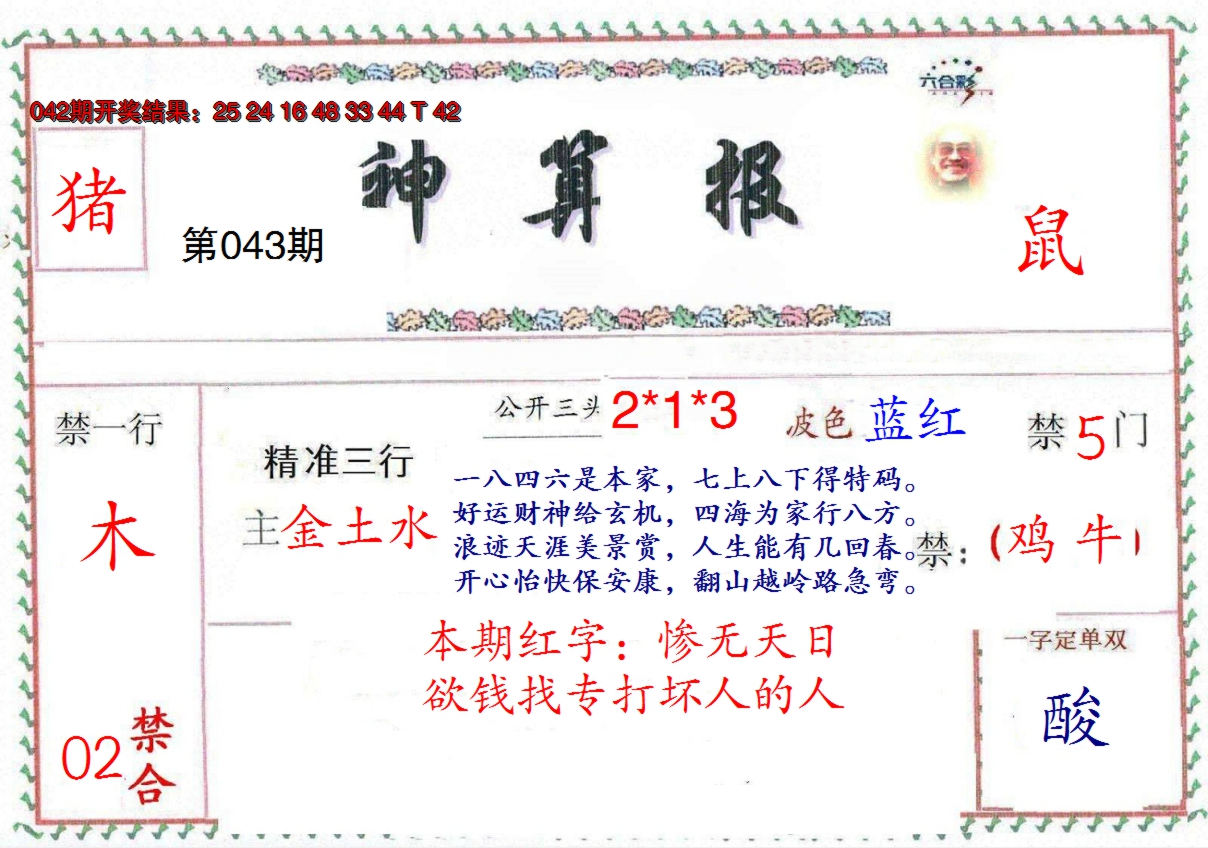 六合彩
042期开奖结果：25 24 16 48 33 44 T 42
神算报
猪
第043期
鼠
禁一行
木
02
禁合
精准三行
主金土水
公开三头 2*1*3
波色 蓝红
禁5门
一八四六是本家，七上八下得特码。
好运财神给玄机，四海为家行八方。
浪迹天涯美景赏，人生能有几回春。
开心怡快保安康，翻山越岭路急弯。
禁：(鸡牛)
本期红字：惨无天日
欲钱找专打坏人的人
一字定单双
酸